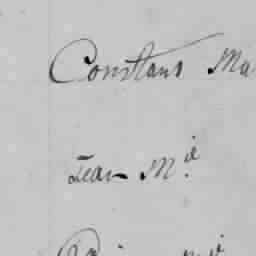 Constans Ma
Jean M.ie